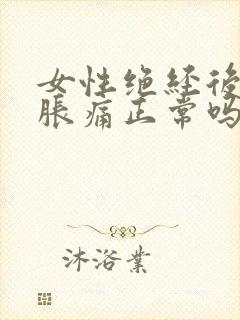 女性绝经後
胀痛正常吗
沐浴業